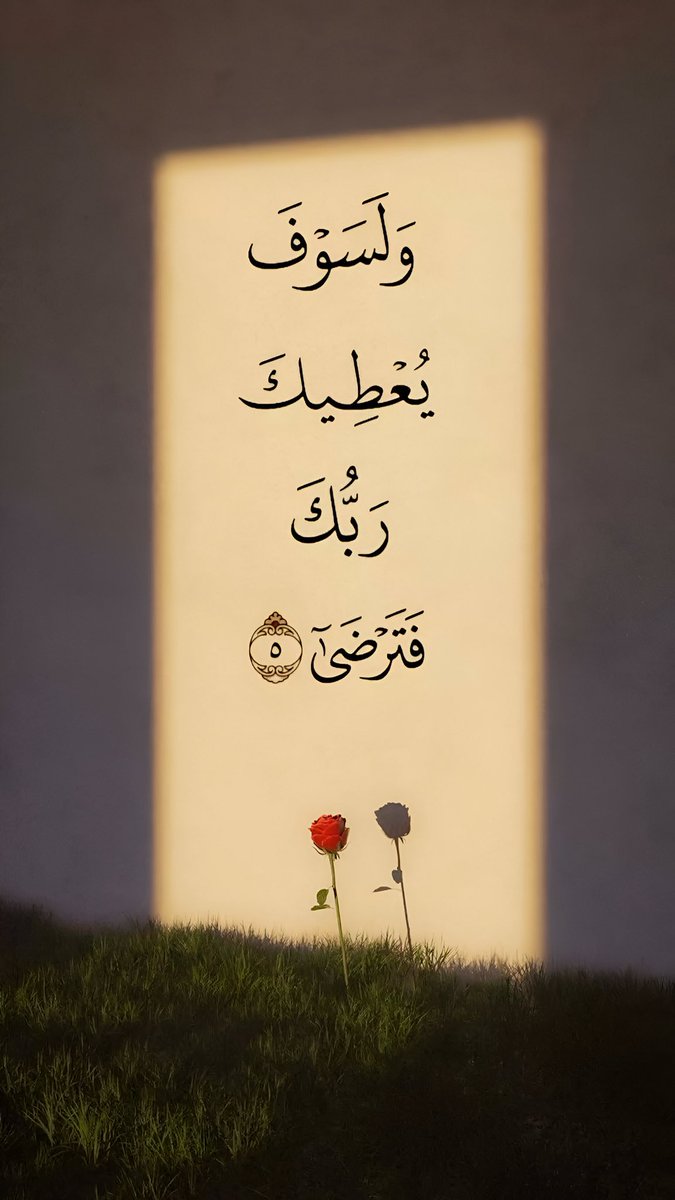 وَلَسَوْفَ
يُعْطِيكَ
رَبُّكَ
فَتَرْضَىٰٓ ٥